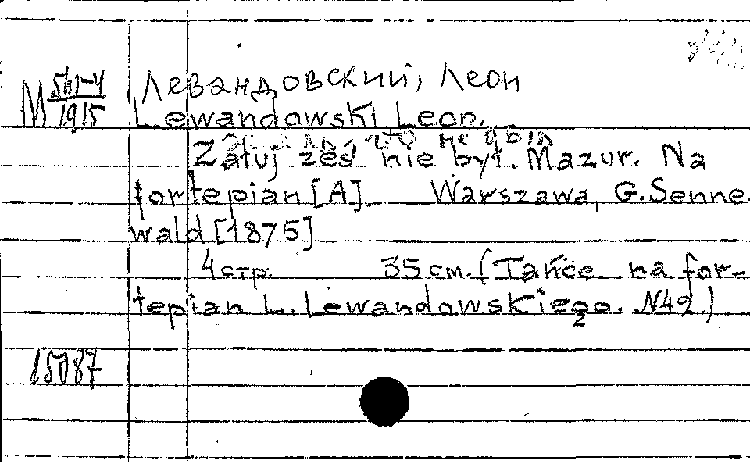 М 561-4/1915
Левандовский, Леон
Lewandowski Leon.
Załuj żeś nie był. Mazur. Na
fortepian [A]. Warszawa, G. Senne-
wald [1875]
4 стр. 35 см. (Tańce na for-
tepian L. Lewandowskiego. №42.)
15087